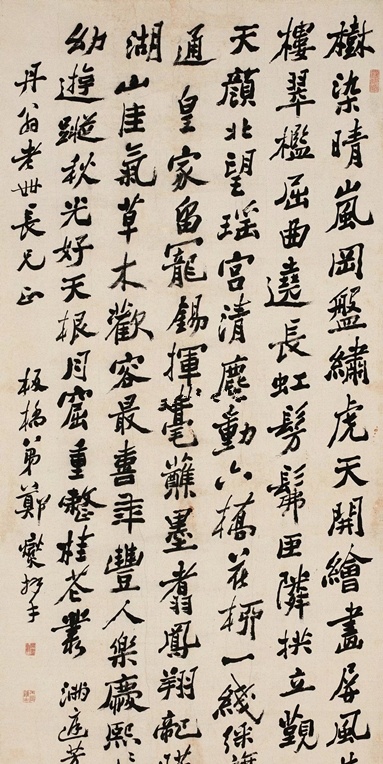 樹染晴嵐岡盤繡虎天開繪畫屏風
樓翠檻屈曲遶長虹髣髴匝隣拱立覲
天顏北望瑤宮清塵動六橋花柳一綫纔
通皇家留寵錫揮毫蘸墨翥鳳翔龍
湖山佳氣草木歡容最喜年豐人樂慶熙
幼遊蹤秋光好天根月窟重整桂花叢 滿庭芳
丹翁老世長兄正 板橋弟鄭燮拜手